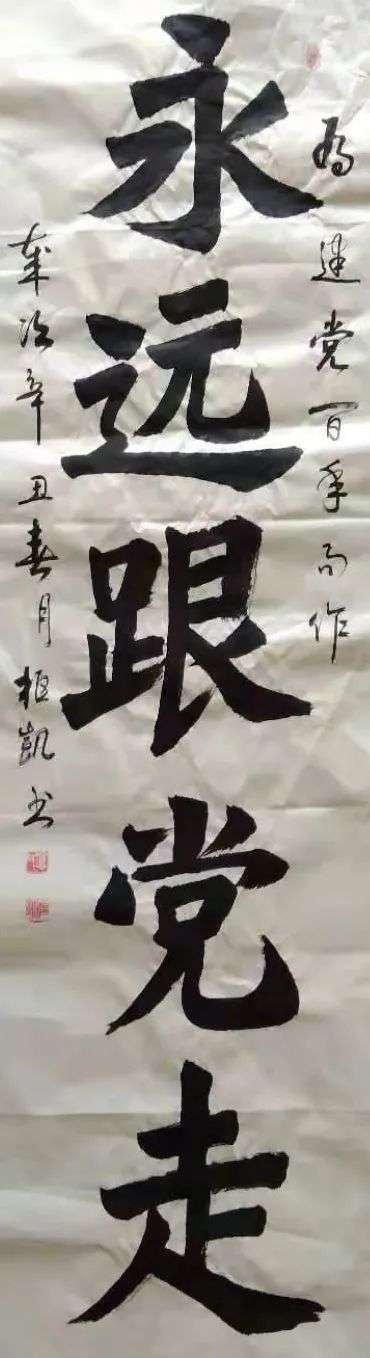 为建党百年而作
永远跟党走
岁次辛丑春月柜凯书